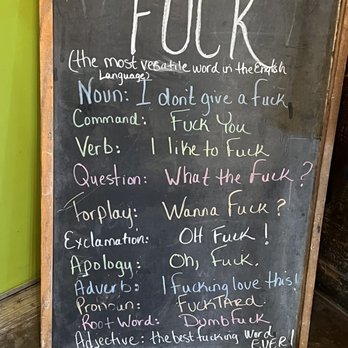 FUCK
(the most versatile word in the English
Language)
Noun: I don't give a fuck
Command: Fuck You
Verb: I like to Fuck
Question: What the Fuck?
Forplay: Wanna Fuck?
Exclamation: OH Fuck!
Apology: Oh, Fuck.
Adverb: I fucking love this!
Pronoun: FuckTARed
Root Word: Dumbfuck
Adjective: the best fucking word
EVER!